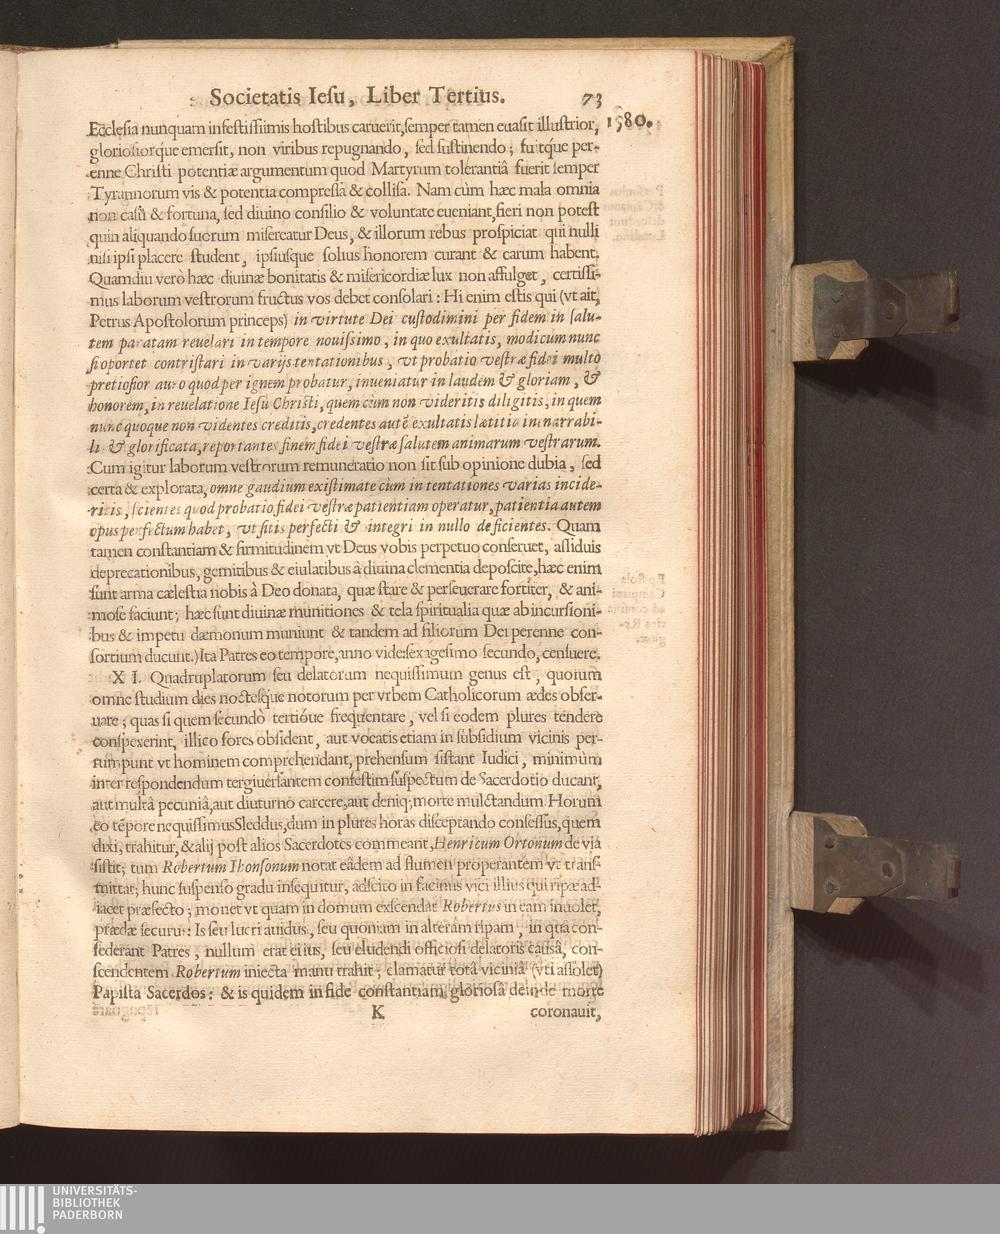 Societatis Iesu, Liber Tertius. 73
1580.
Ecclesia nunquam infestissimis hostibus caruerit, semper tamen euasit illustrior,
gloriosiorq́ue emersit, non viribus repugnando, sed sustinendo; fuitq́ue per-
enne Christi potentiæ argumentum quod Martyrum tolerantiâ fuerit semper
Tyrannorum vis & potentia compressa & collisa. Nam cùm hæc mala omnia
non casu & fortuna, sed diuino consilio & voluntate eueniant, fieri non potest
quin aliquando suorum misereatur Deus, & illorum rebus prospiciat qui nulli
nisi ipsi placere student, ipsiusque solius honorem curant & carum habent.
Quamdiu verò hæc diuinæ bonitatis & misericordiæ lux non affulget, certissi-
mus laborum vestrorum fructus vos debet consolari: Hi enim estis qui (vt ait,
Petrus Apostolorum princeps) in virtute Dei custodimini per fidem in salu-
tem paratam reuelari in tempore nouissimo, in quo exultatis, modicum nunc
si oportet contristari in varijs tentationibus, vt probatio vestræ fidei multò
pretiosior auro quod per ignem probatur, inueniatur in laudem & gloriam, &
honorem, in reuelatione Iesu Christi, quem cùm non videritis diligitis, in quem
nunc quoque non videntes creditis, credentes autē exultatis lætitia inenarrabi-
li & glorificata, reportantes finem fidei vestræ salutem animarum vestrarum.
Cum igitur laborum vestrorum remuneratio non sit sub opinione dubia, sed
certa & explorata, omne gaudium existimate cùm in tentationes varias incide-
ritis, scientes quod probatio fidei vestræ patientiam operatur, patientia autem
opus perfectum habet, vt sitis perfecti & integri in nullo deficientes. Quam
tamen constantiam & firmitudinem vt Deus vobis perpetuo conseruet, assiduis
deprecationibus, gemitibus & eiulatibus à diuina clementia deposcite, hæc enim
sunt arma cælestia nobis à Deo donata, quæ stare & perseuerare fortiter, & ani-
mose faciunt; hæc sunt diuinæ munitiones & tela spiritualia quæ ab incursioni-
bus & impetu dæmonum muniunt & tandem ad filiorum Dei perenne con-
sortium ducunt.) Ita Patres eo tempore, anno vide: sexagesimo secundo, censuere.
X I. Quadruplatorum seu delatorum nequissimum genus est, quorum
omne studium dies noctesq́ue notorum per vrbem Catholicorum ædes obser-
uare; quas si quem secundò tertióue frequentare, vel si eodem plures tendere
conspexerint, illico fores obsident, aut vocatis etiam in subsidium vicinis per-
rumpunt vt hominem comprehendant, prehensum sistant Iudici, minimùm
inter respondendum tergiuersantem confestim suspectum de Sacerdotio ducant,
aut multâ pecuniâ, aut diuturno carcere, aut deniq; morte mulctandum. Horum
eo tēpore nequissimus Sleddus, dum in plures horas disceptando consessus, quem
dixi, trahitur, & alij post alios Sacerdotes commeant, Henricum Ortonum de via
sistit; tum Robertum Ihonsonum notat eâdem ad flumen properantem vt trans-
mittat; hunc suspenso gradu insequitur, adscito in facinus vici illius qui ripæ ad-
iacet præfecto; monet vt quam in domum exscendat Robertus in eam inuolet,
prædæ securus: Is seu lucri auidus, seu quoniam in alteram ripam, in qua con-
sederant Patres, nullum erat ei ius, seu eludendi officiosi delatoris causâ, con-
scendentem Robertum iniecta manu trahit; clamatur totâ viciniâ (vti assolet)
Papista Sacerdos: & is quidem in fide constantiam gloriosâ deinde morte
K coronauit,
UNIVERSITÄTS-
BIBLIOTHEK
PADERBORN